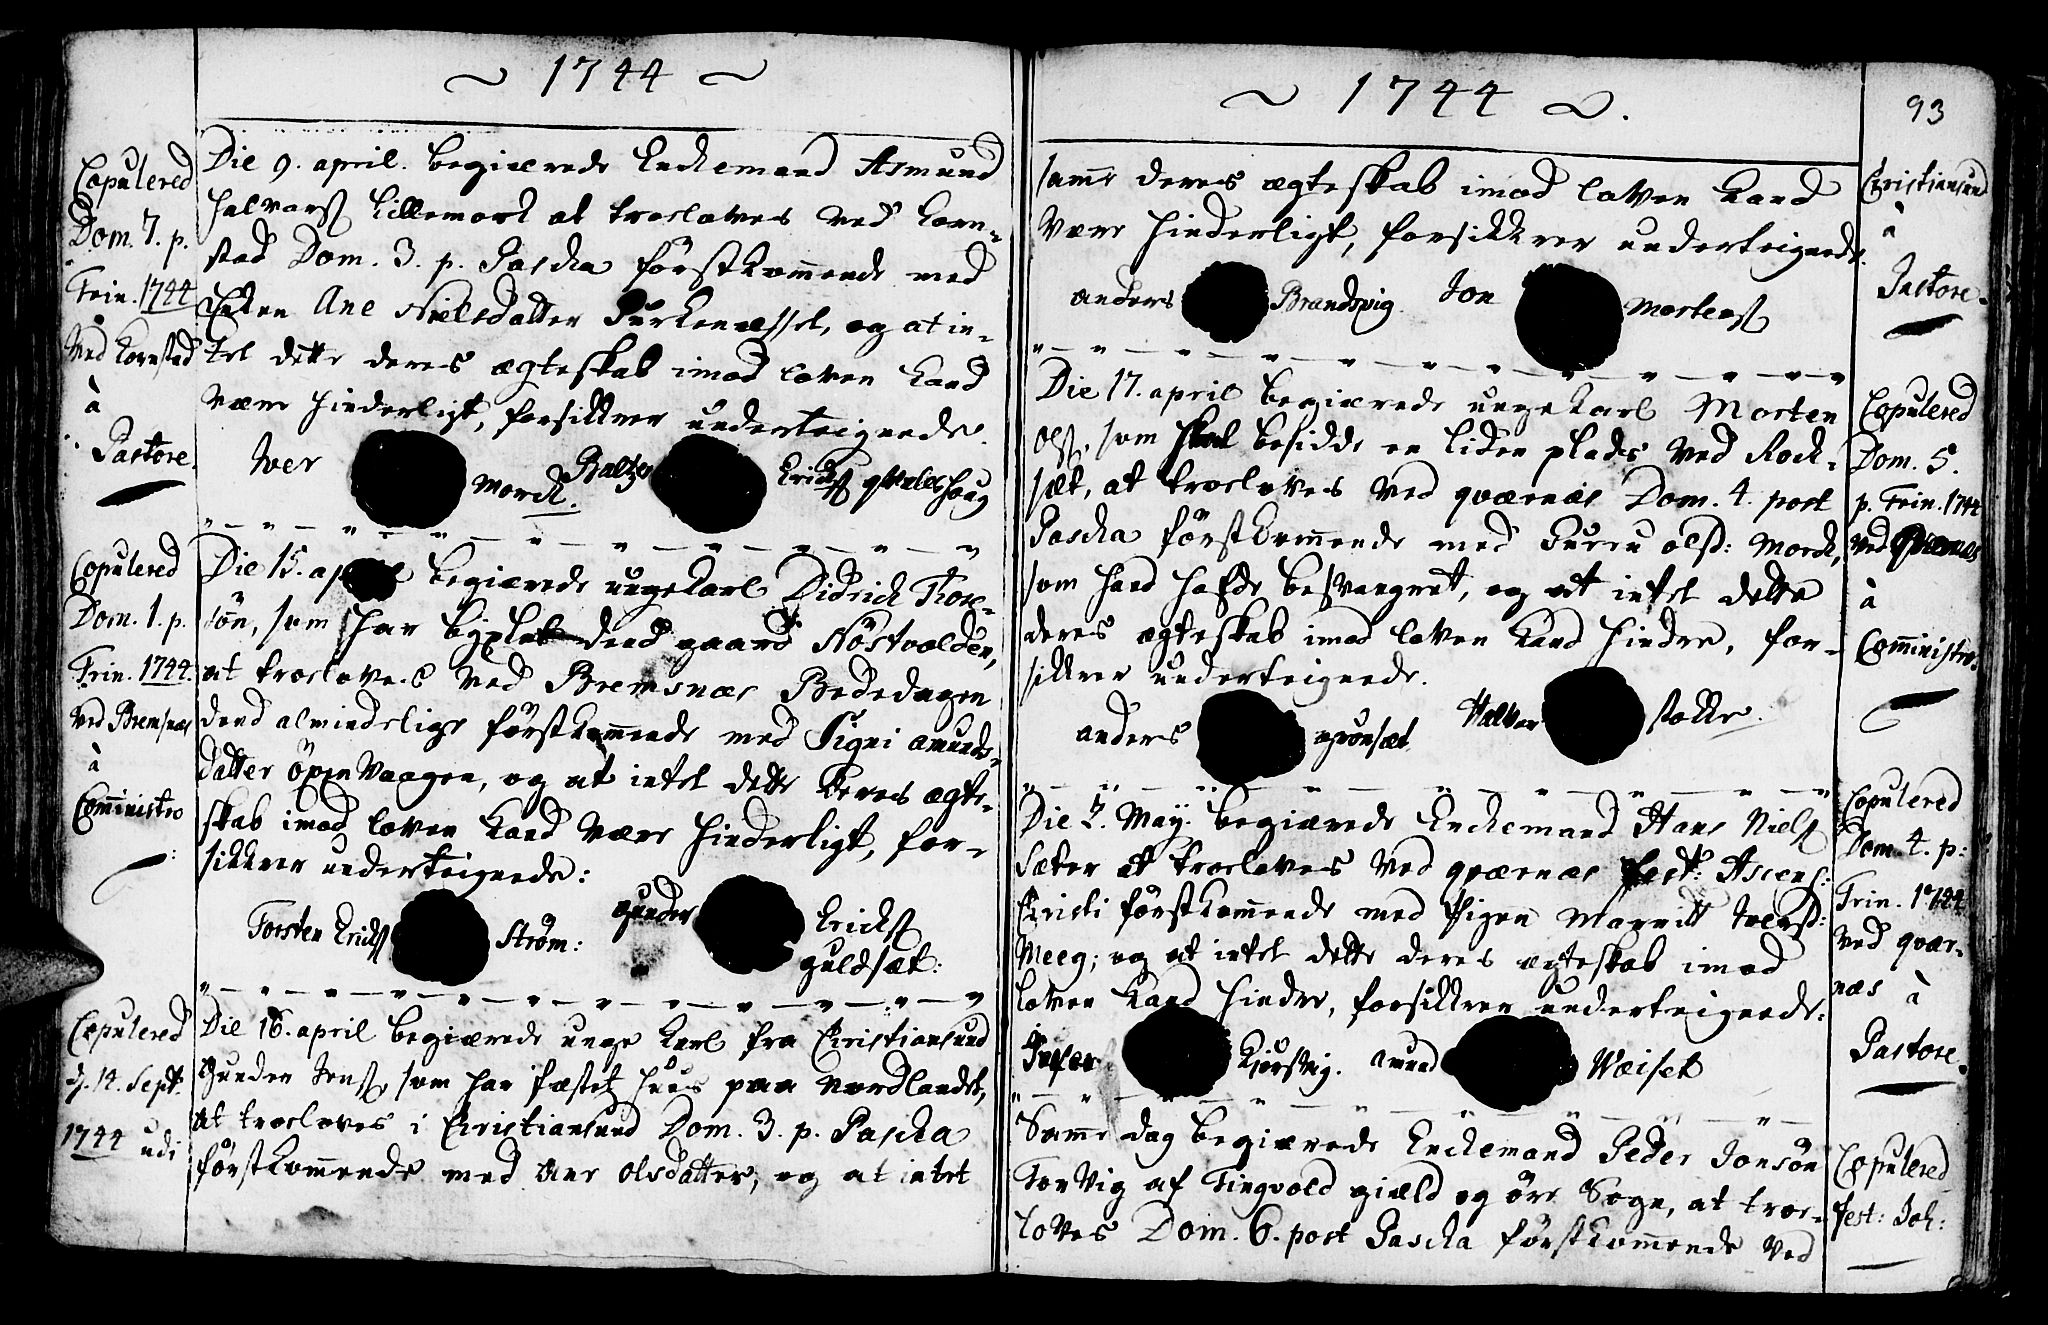 ~ 1744 ~
Copulered
Dom. 7. p.
Trin. 1744
Ved Kornstad
à
Pastore.
Die 9. april. begiærede Enckemand Asmund
Halvorss Lillemork at troeloves ved Korn-
stad Dom. 3. p. Pascha förstkommende med
Enken Ane Nielsdatter Furkenæsset, og at in-
tet dette deres ægteskab imod loven kand
være hinderligt, forsikkrer underteignede.
Iver Morck. Baltzer Erickss qvaleshoug
Copulered
Dom. 1. p.
Trin. 1744.
Ved Bremsnæs
à
Cominnistro
Die 15. april begiærede ungekarl Didrich Tore-
sön, som har bÿxlet deod gaard Höstvolden,
at troeloves ved Bremsnæs Bededagen
dend almindelige förstkommende med Signi amunds-
datter öpen Vaagen, og at intet dette deres ægte-
skab imod loven kand være hinderligt, for-
sikkrer underteignede:
Torsten Erickss Ström: gunder Erickss
guldsæt:
Copulered
d. 14. Sept.
1744 udi
Die 16. april begiærede unge Karl fra Christiansund
Gunder Jenss, som har fæstet huus paa Nordlandet,
at troeloves i Christiansund Dom. 3. p. Pascha
förstkommende med Ane olsdatter, og at intet
~ 1744 ~.
93
samme deres ægteskab imod loven kand
være hinderligt, forsikkrer underteignede.
anders Brandsvig. Jon Mortenss
Christiansund
à
Pastore.
Die 17. april begiærede ungekarl Morten
olss, som skal besidde en liden plads ved Rock-
sæt, at troeloves ved qværnæs Dom. 4. post
Pascha förstkommende med Gurru olsd: Morck,
som hand hafde besvangret, og at intet dette
deres ægteskab imod loven kand hindre, for-
sikkrer underteignede.
anders grönsæt Halvor stokke.
Copulered
Dom. 5.
p. Trin. 1744
ved Qværnæs
à
Comministro.
Die 2. May. begiærede Enckemand Hans Nielss
Sæter at troeloves ved qværnæs Fest: Ascens:
Christi förstkommende med Pigen Marritt Iversd:
Meeg, og at intet dette deres ægteskab imod
loven kand hindre, forsikkrer underteignede:
Kjörsvig. Amund Wæiset
Copulered
Dom. 4. p:
Trin. 1744
ved qvær-
næs à
Pastore.
Samme dag begiærede Enckemand Peder Jonsön
Torvig af Tingvold gield og öre Sogn, at troe-
loves Dom. 6. post Pascha förstkommende ved
Copulered
fest: Joh: